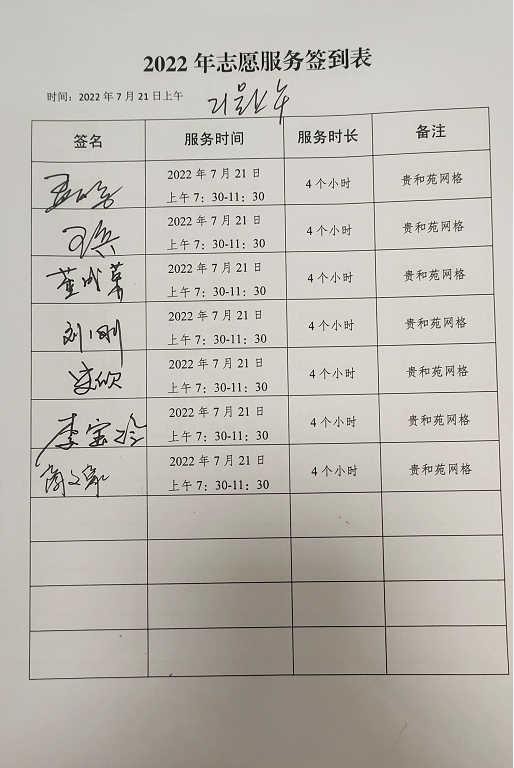 2022 年志愿服务签到表
时间：2022 年 7 月 21 日上午
签名 服务时间 服务时长 备注
2022 年 7 月 21 日
上午 7：30-11：30 4 个小时 贵和苑网格
2022 年 7 月 21 日
上午 7：30-11：30 4 个小时 贵和苑网格
董成荣 2022 年 7 月 21 日
上午 7：30-11：30 4 个小时 贵和苑网格
刘刚 2022 年 7 月 21 日
上午 7：30-11：30 4 个小时 贵和苑网格
2022 年 7 月 21 日
上午 7：30-11：30 4 个小时 贵和苑网格
李宝玲 2022 年 7 月 21 日
上午 7：30-11：30 4 个小时 贵和苑网格
2022 年 7 月 21 日
上午 7：30-11：30 4 个小时 贵和苑网格